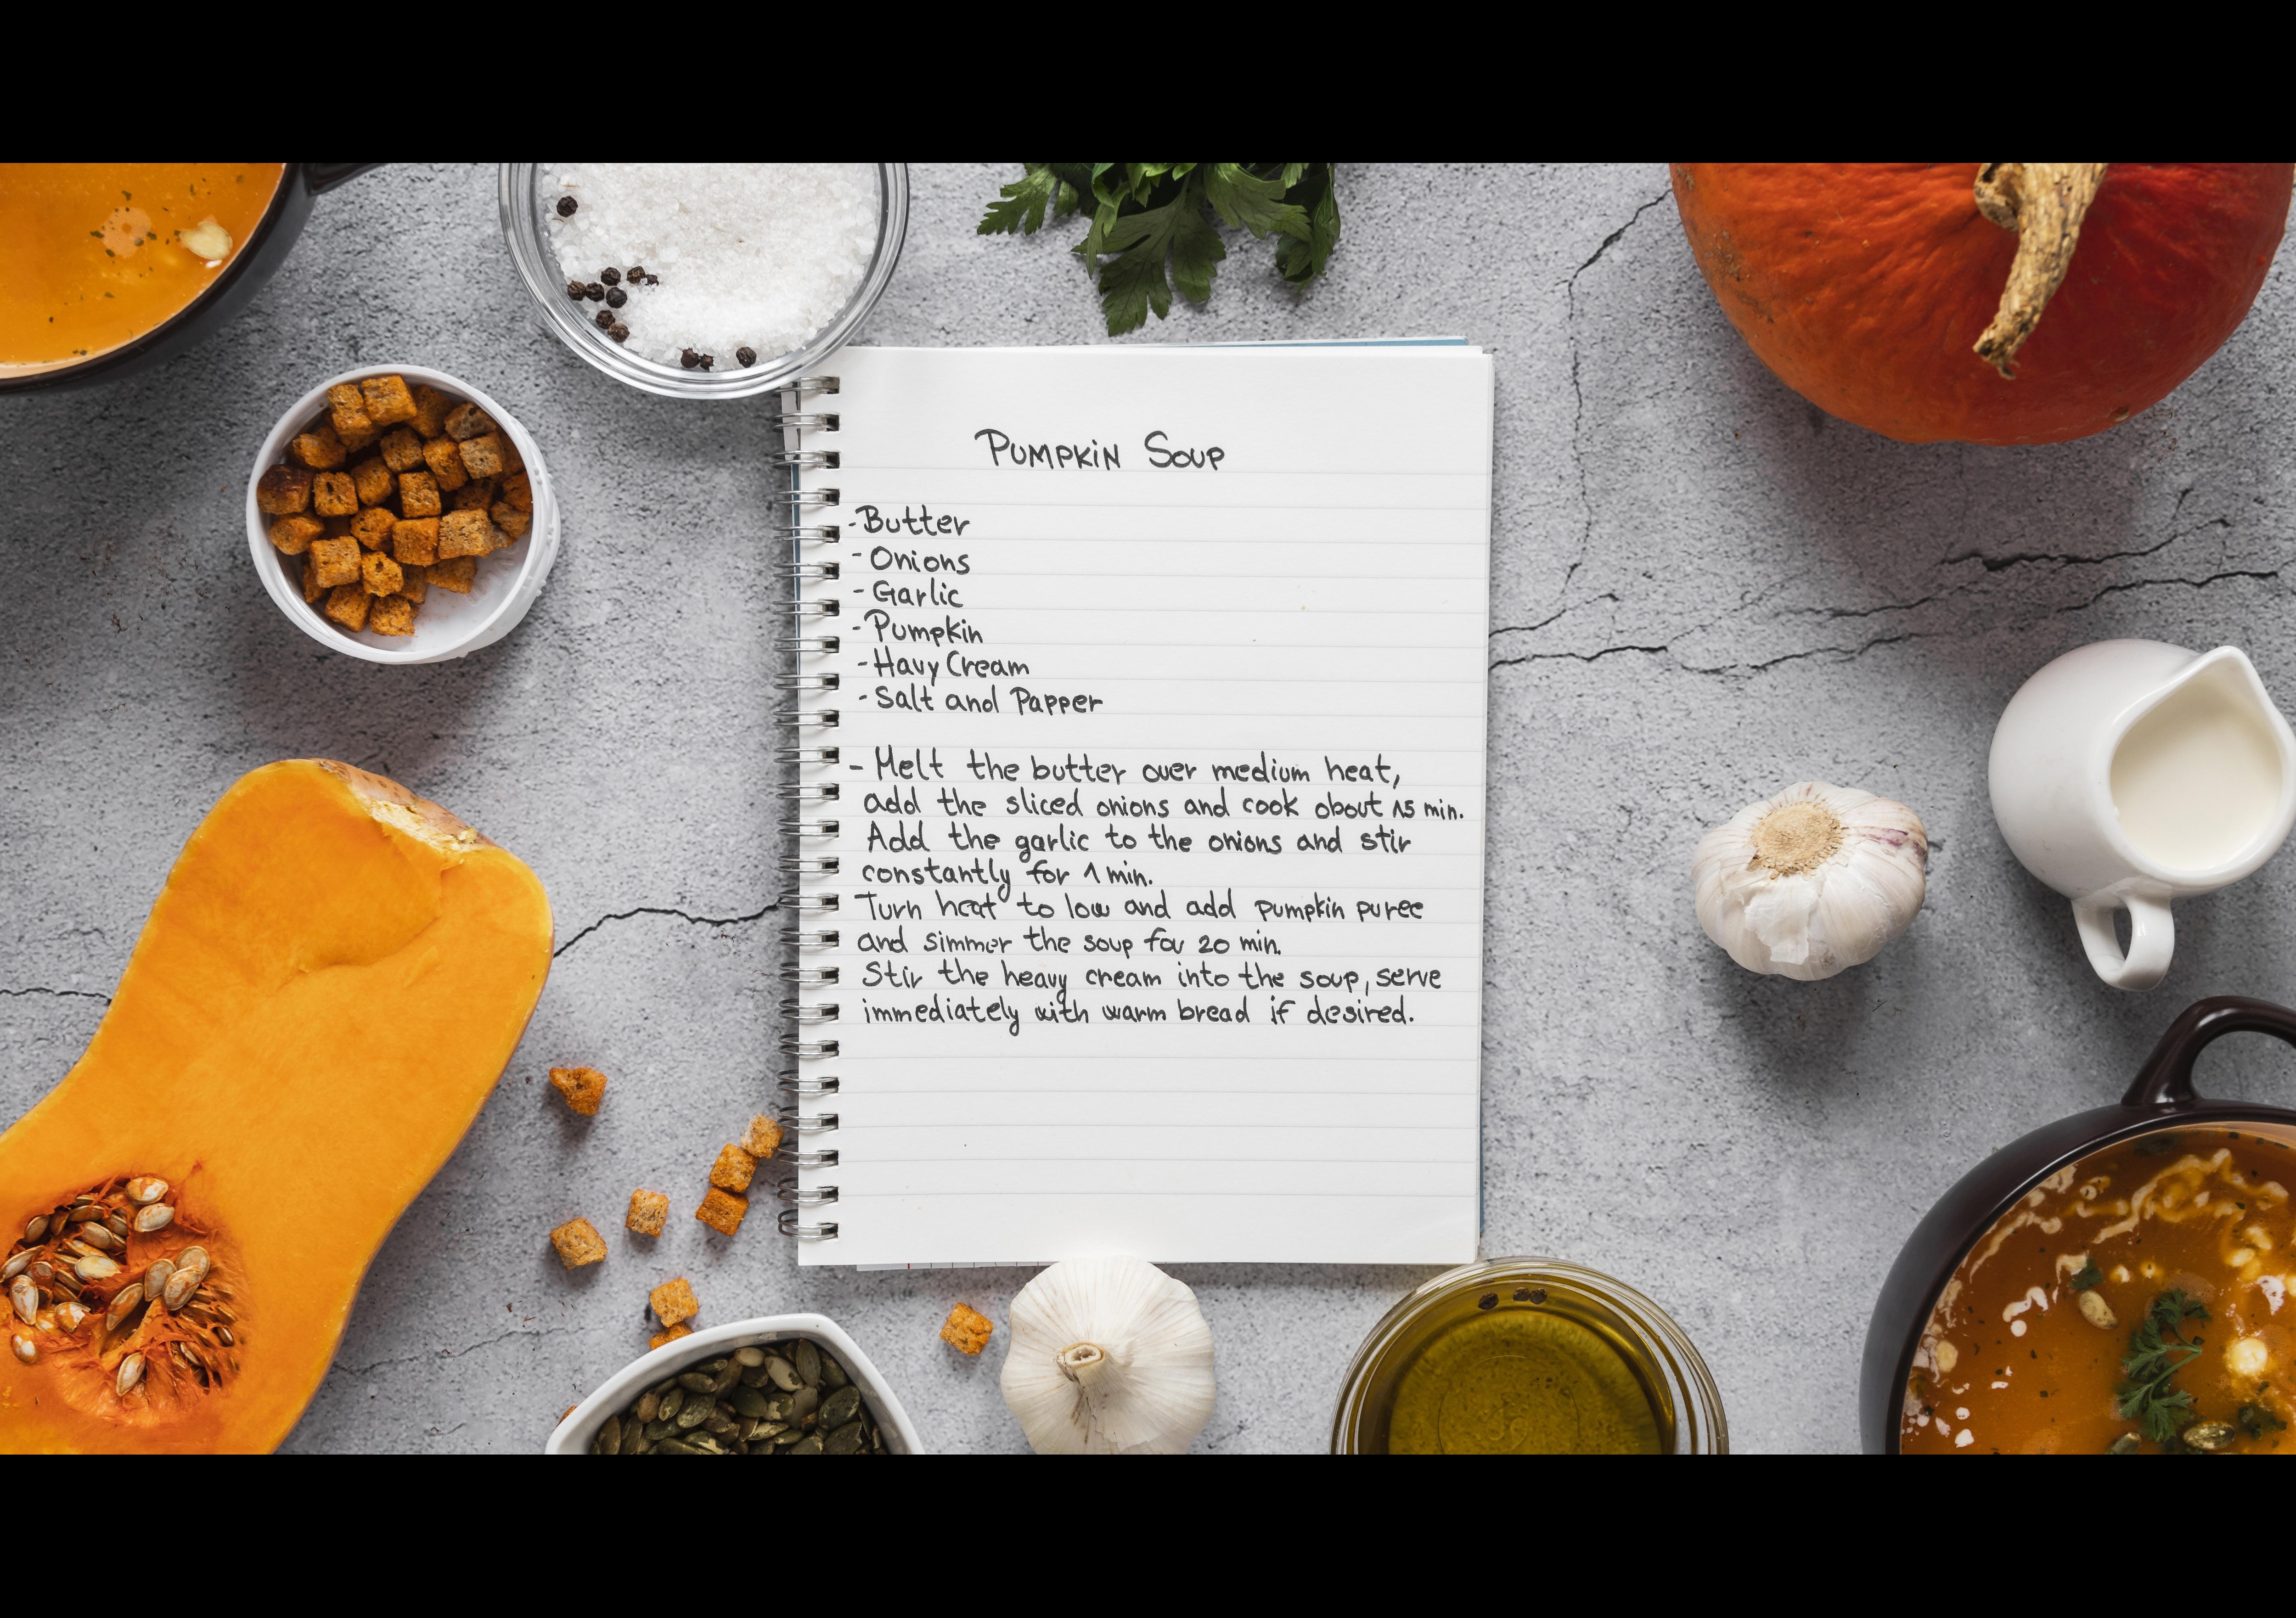 Pumpkin Soup
-Butter
- Onions
- Garlic
- Pumpkin
- Havy Cream
- Salt and Papper
- Melt the butter over medium heat,
add the sliced onions and cook obout 15 min.
Add the garlic to the onions and stir
constantly for 1 min.
Turn heat to low and add pumpkin puree
and simmer the soup for 20 min.
Stir the heavy cream into the soup, serve
immediately with warm bread if desired.